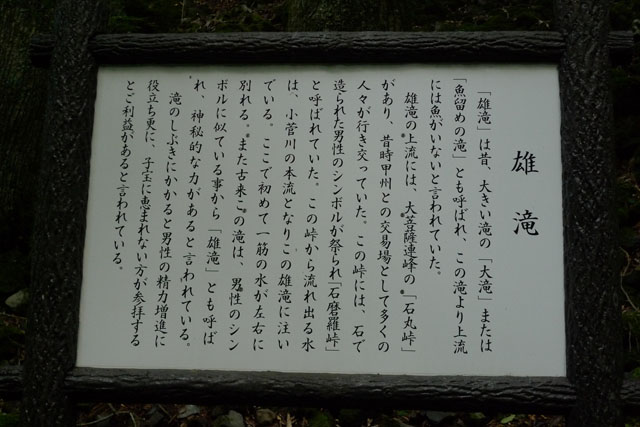 雄滝
「雄滝」は昔、大きい滝の「大滝」または
「魚留めの滝」とも呼ばれ、この滝より上流
には魚がいないと言われていた。
雄滝の上流には、大菩薩連峰の「石丸峠」
があり、昔時甲州との交易場として多くの
人々が行き交っていた。この峠には、石で
造られた男性のシンボルが祭られ「石磨羅峠」
と呼ばれていた。この峠から流れ出る水
は、小菅川の本流となりこの雄滝に注い
でいる。ここで初めて一筋の水が左右に
別れる。また古来この滝は、男性のシン
ボルに似ている事から「雄滝」とも呼ば
れ、神秘的な力があると言われている。
滝のしぶきにかかると男性の精力増進に
役立ち更に、子宝に恵まれない方が参拝する
とご利益があると言われている。